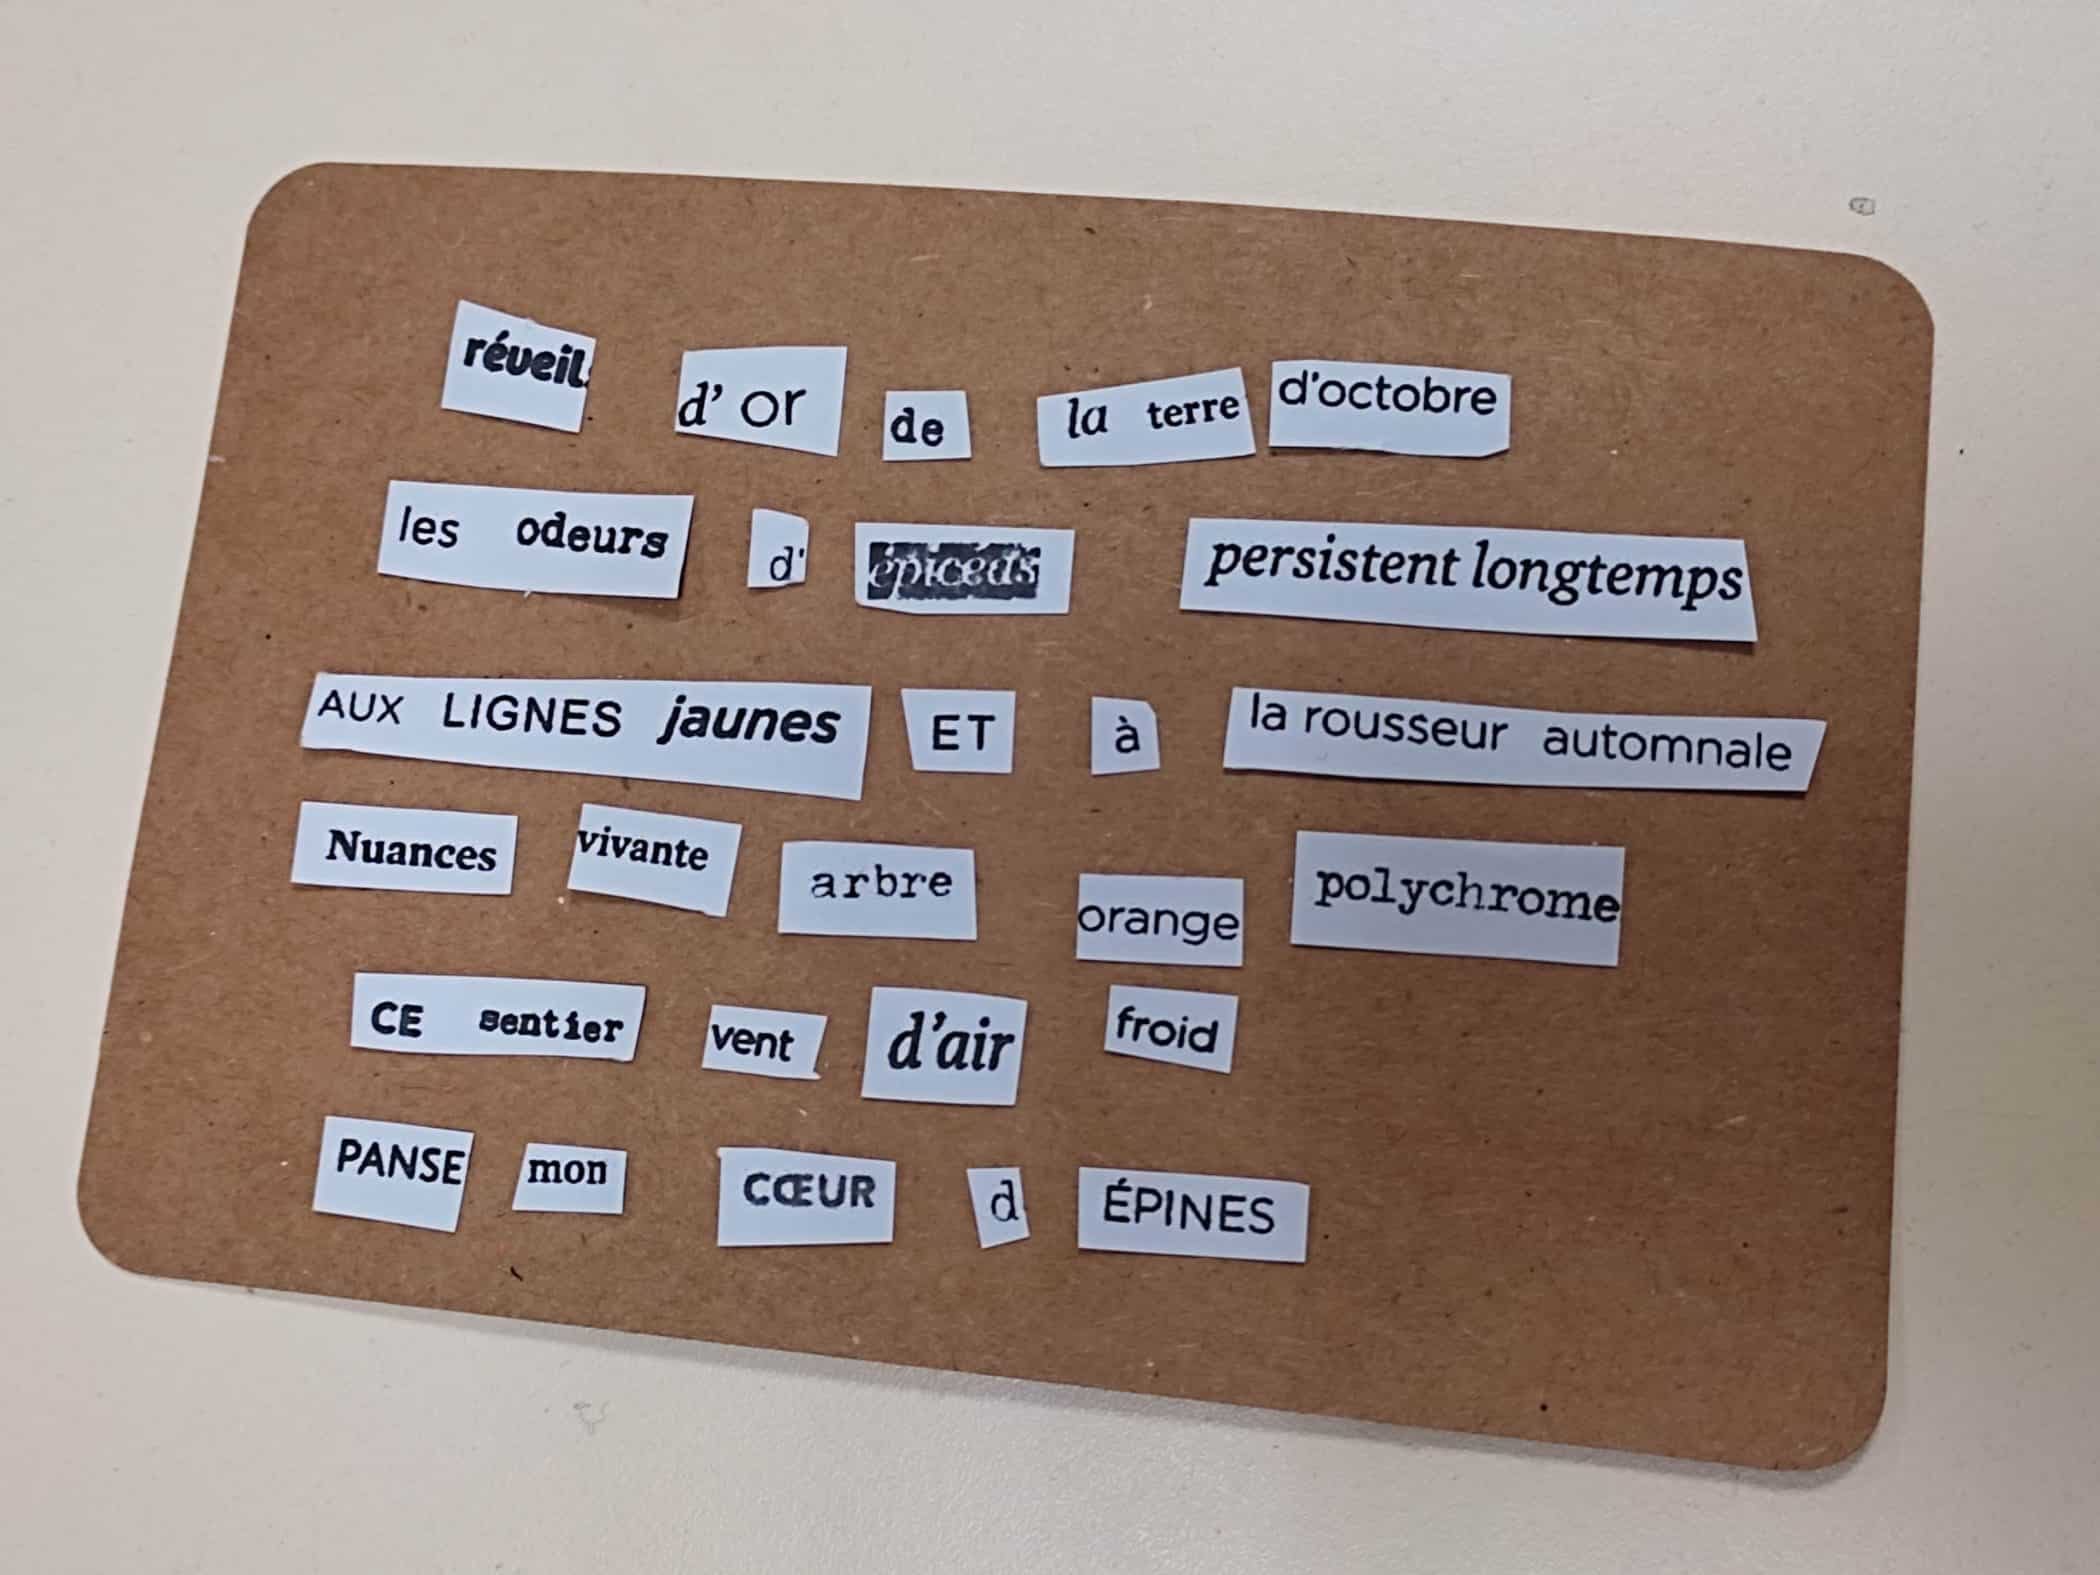 réveil d'or de la terre d'octobre
les odeurs d' épicéas persistent longtemps
AUX LIGNES jaunes ET à la rousseur automnale
Nuances vivante arbre orange polychrome
CE sentier vent d'air froid
PANSE mon CŒUR d ÉPINES